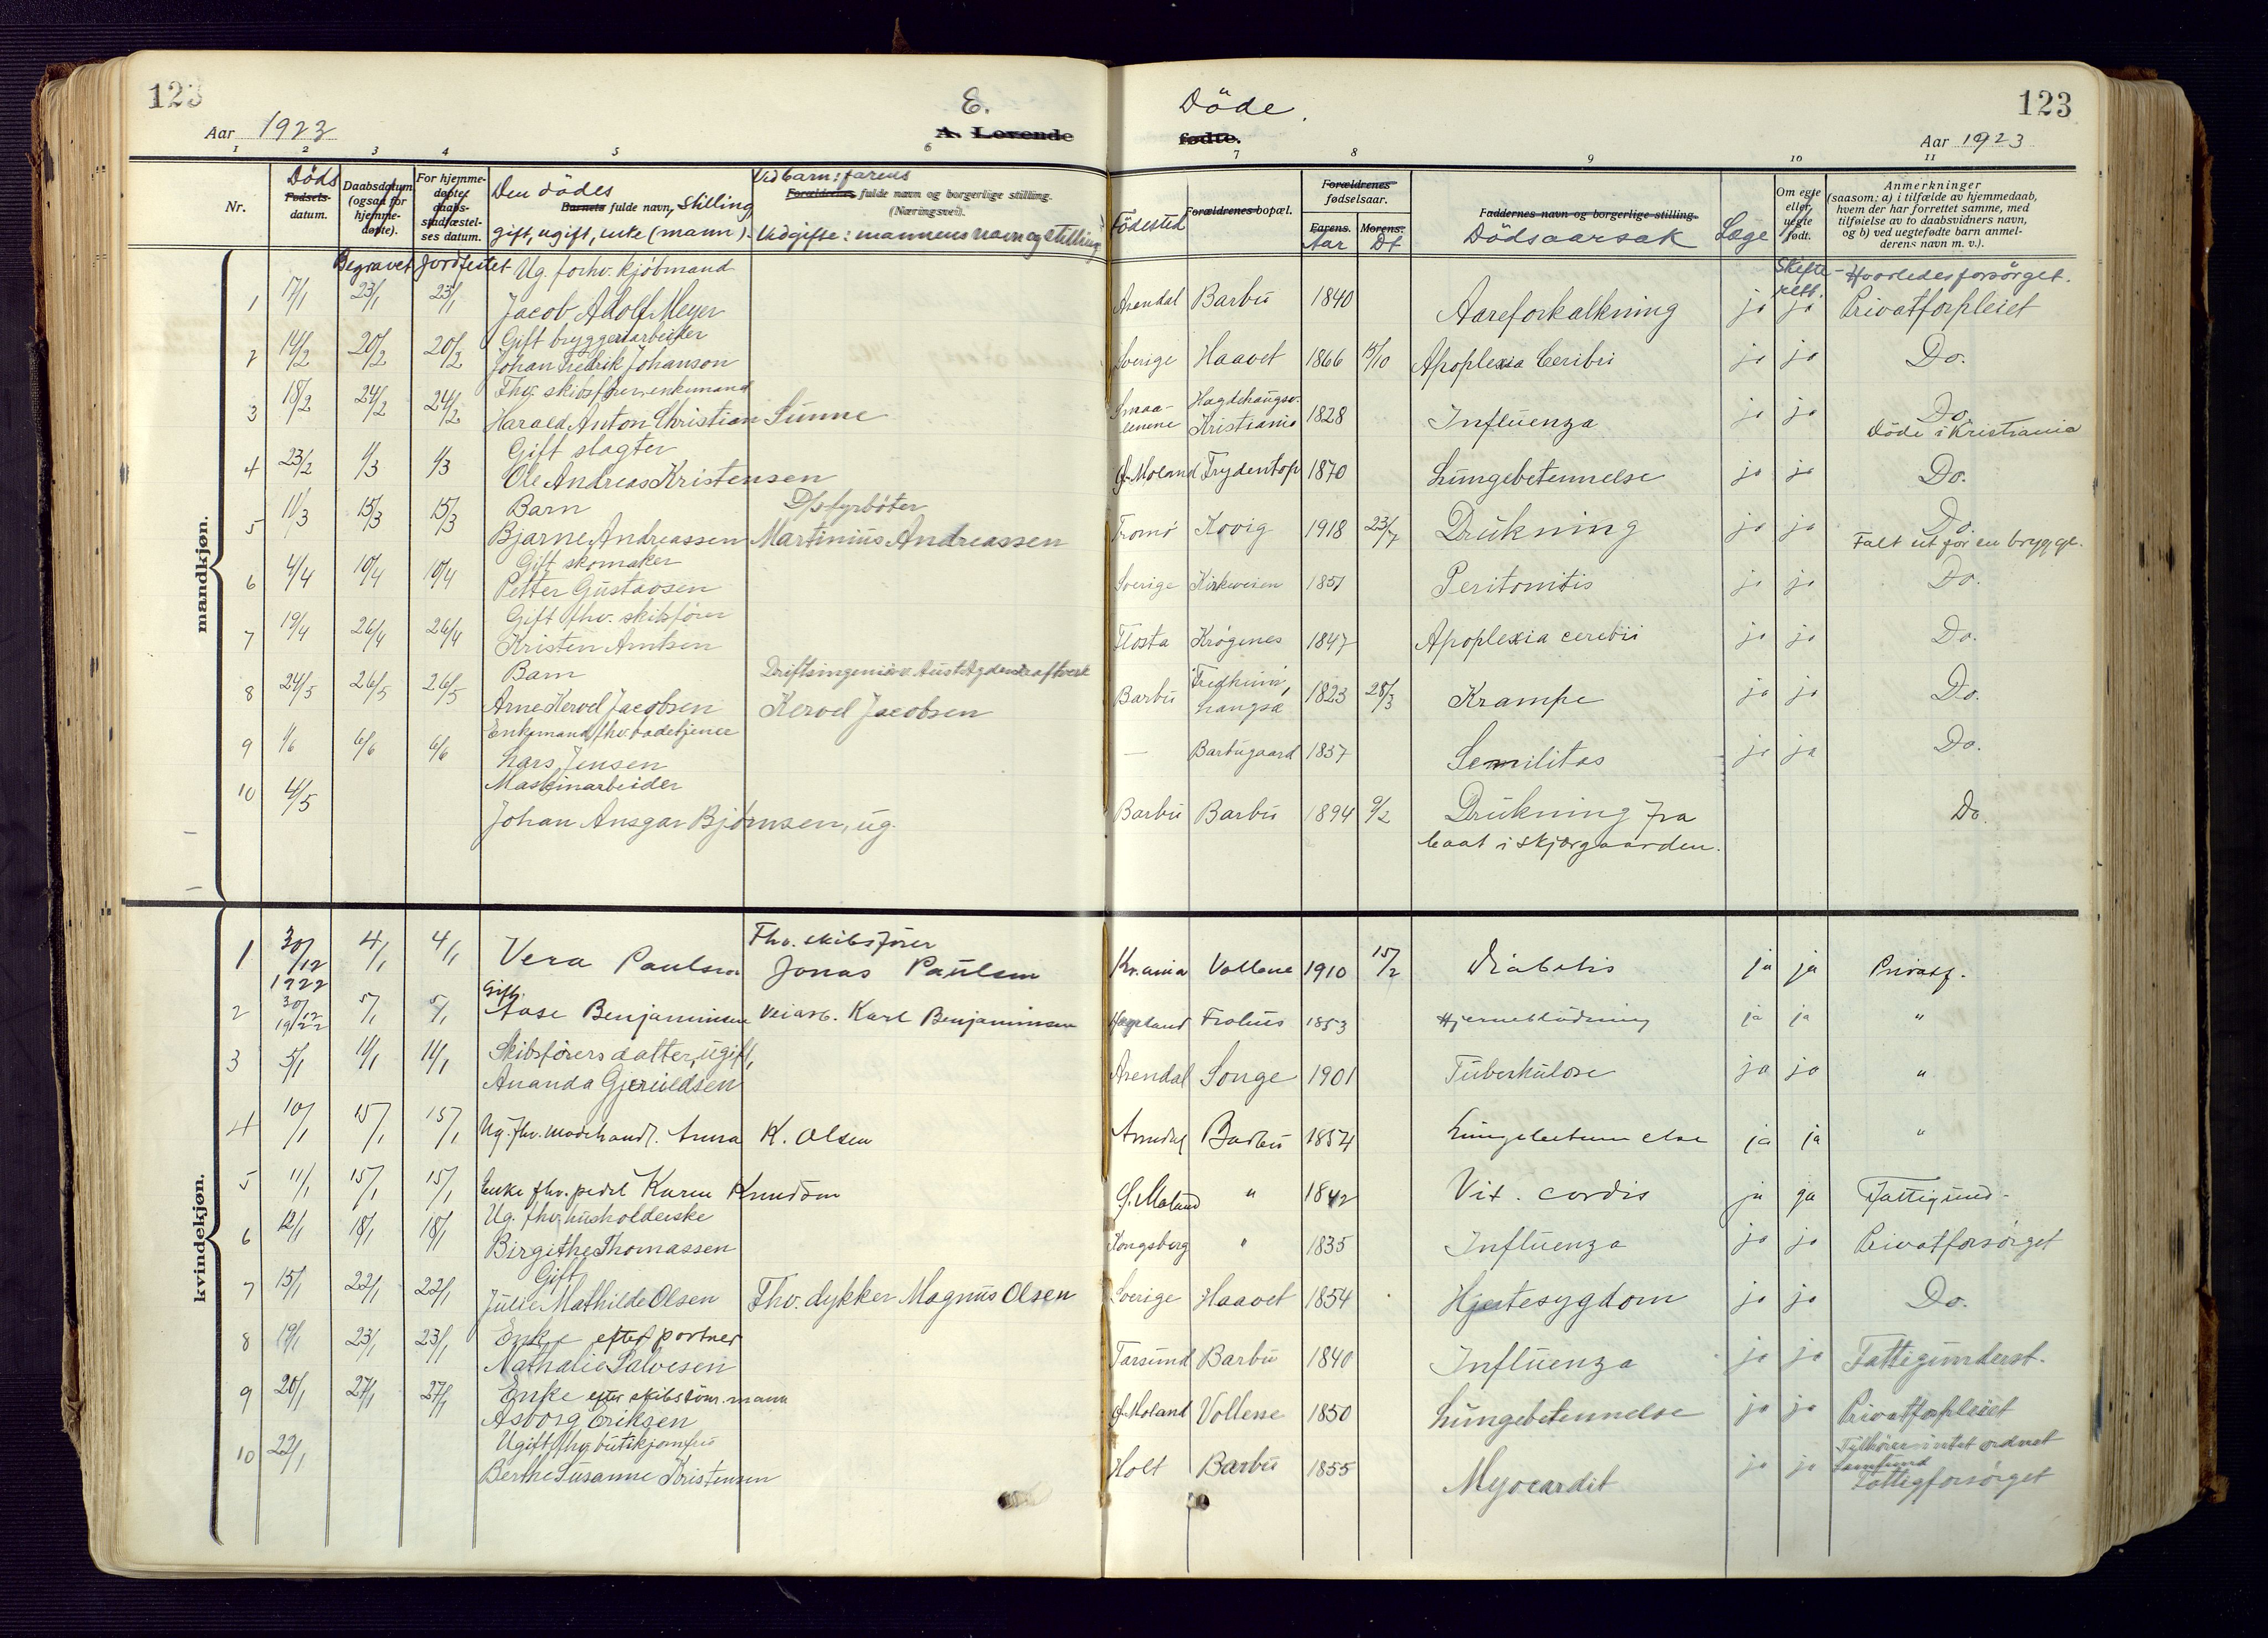 123
E. Döde.
123
Aar 1923
A. Levende fødte.
Aar 1923
1 2 3 4 5 6 7 8 9 10 11
Nr.
Döds Fødsels- datum.
Daabsdatum (ogsaa for hjemme- døpte).
Begravet
For hjemme- døpte: daabs- stadfæstel- ses datum.
Jordfestet
Den dödes Barnets fulde navn, stilling,
gift, ugift, enke (mann).
Ved barn: farens
Forældrenes fulde navn og borgerlige stilling.
(Næringsvei).
Ved gifte: mannens navn og stilling
Födested
Forældrenes bopæl.
Forældrenes fødselsaar.
Farens. Morens.
Aar Dt
Faddernes navn og borgerlige stilling.
Dödsaarsak
Læge
Om egte eller uegte født.
Skifte- rett.
Anmerkninger
(saasom: a) i tilfælde av hjemmedaab,
hvem der har forrettet samme, med
tilføielse av to daabsvidners navn,
og b) ved uegtefødte barn anmel-
derens navn m. v.).
Hvorledes forsörget.
mandkjøn.
1 17/1 23/1 23/1 Ug. forhv. kjöbmand Jacob Adolf Meyer Arendal Barbu 1840 Aareforkalkning ja ja Privatforpleiet
2 14/2 20/2 20/2 Gift bryggeriarbeider Johan Fredrik Johanson Sverige Haavet 1866 15/10 Apoplexia Ceribri ja ja Do.
3 18/2 24/2 24/2 Fhv. skibsfører, enkemand Harald Anton Christian Sunne Smaa- lenene Hagdehaugsv. Kristiania 1828 Influenza ja ja Do. Döde i Kristiania
4 23/2 1/3 1/3 Gift slagter Ole Andreas Kristensen Ø. Moland Frydentop 1870 Lungebetennelse ja ja Do.
5 11/3 15/3 15/3 Barn Bjarne Andreassen D/s fyrbøter Martinius Andreassen Tromø Kovig 1918 23/7 Drukning ja ja Do. Falt ut for en brygge.
6 4/4 10/4 10/4 Gift skomaker Petter Gustavsen Sverige Kirkeveien 1851 Peritonitis ja ja Do.
7 19/4 26/4 26/4 Gift fhv. skibsfører Kristen Arntsen Flosta Krøgenes 1847 Apoplexia ceribii ja ja Do.
8 24/5 26/5 26/5 Barn Arne Kervel Jacobsen Driftsingeniør v. Aust Agder kraftverk Kervel Jacobsen Barbu 1823 28/3 Krampe ja ja Do.
9 1/6 6/6 6/6 Enkemand, fhv. badetjener Lars Jensen — Barbugaard 1837 Semilitas ja ja Do.
10 4/5 Maskinarbeider Johan Ansgar Bjørnsen, ug. Barbu Barbu 1894 9/2 Drukning fra baat i skjærgaarden. Do.
kvindekjøn.
1 30/12 1922 4/1 4/1 Vera Paulsen Fhv. skibsfører Jonas Paulsen Kr.ania Vollene 1910 15/2 Diabetis ja ja Privatf.
2 30/12 1922 5/1 5/1 Gift. Aase Benjaminsen veiarb. Karl Benjaminsen Froluis 1853 Hjerneblödning ja ja "
3 5/1 14/1 14/1 Skibsførers datter, ugift, Ananda Gjeruldsen Arendal Songe 1901 Tuberkulose ja ja "
4 10/1 15/1 15/1 Ug. fhv. modehandl. Anna K. Olsen Arendal Barbu 1854 Lungebetennelse ja ja "
5 11/1 15/1 15/1 Enke fhv. pedel Karen Knudsen Ø. Moland " 1842 Vit. cordis ja ja Fattigund-
6 12/1 18/1 18/1 Ug. fhv. husholderske Birgithe Thomassen Kongsberg " 1835 Influenza ja ja Privatforsörget
7 15/1 22/1 22/1 Gift Julie Mathilde Olsen Fhv. dykker Magnus Olsen Sverige Haavet 1854 Hjertesygdom ja ja Do.
8 19/1 23/1 23/1 Enke efter portner Nathalie Salvesen Farsund Barbu 1840 Influenza ja ja Fattigunderst.
9 20/1 27/1 27/1 Enke efter skibstömmermann Asborg Eriksen Ø. Moland Vollene 1850 Lungebetennelse ja ja Privatforpleiet
10 22/1 Ugift, fhv. butikjomfru Berthe Susanne Kristensen Holt Barbu 1855 Myocardit ja ja Tilhörer intet ordnet Samfund Fattigforsörget